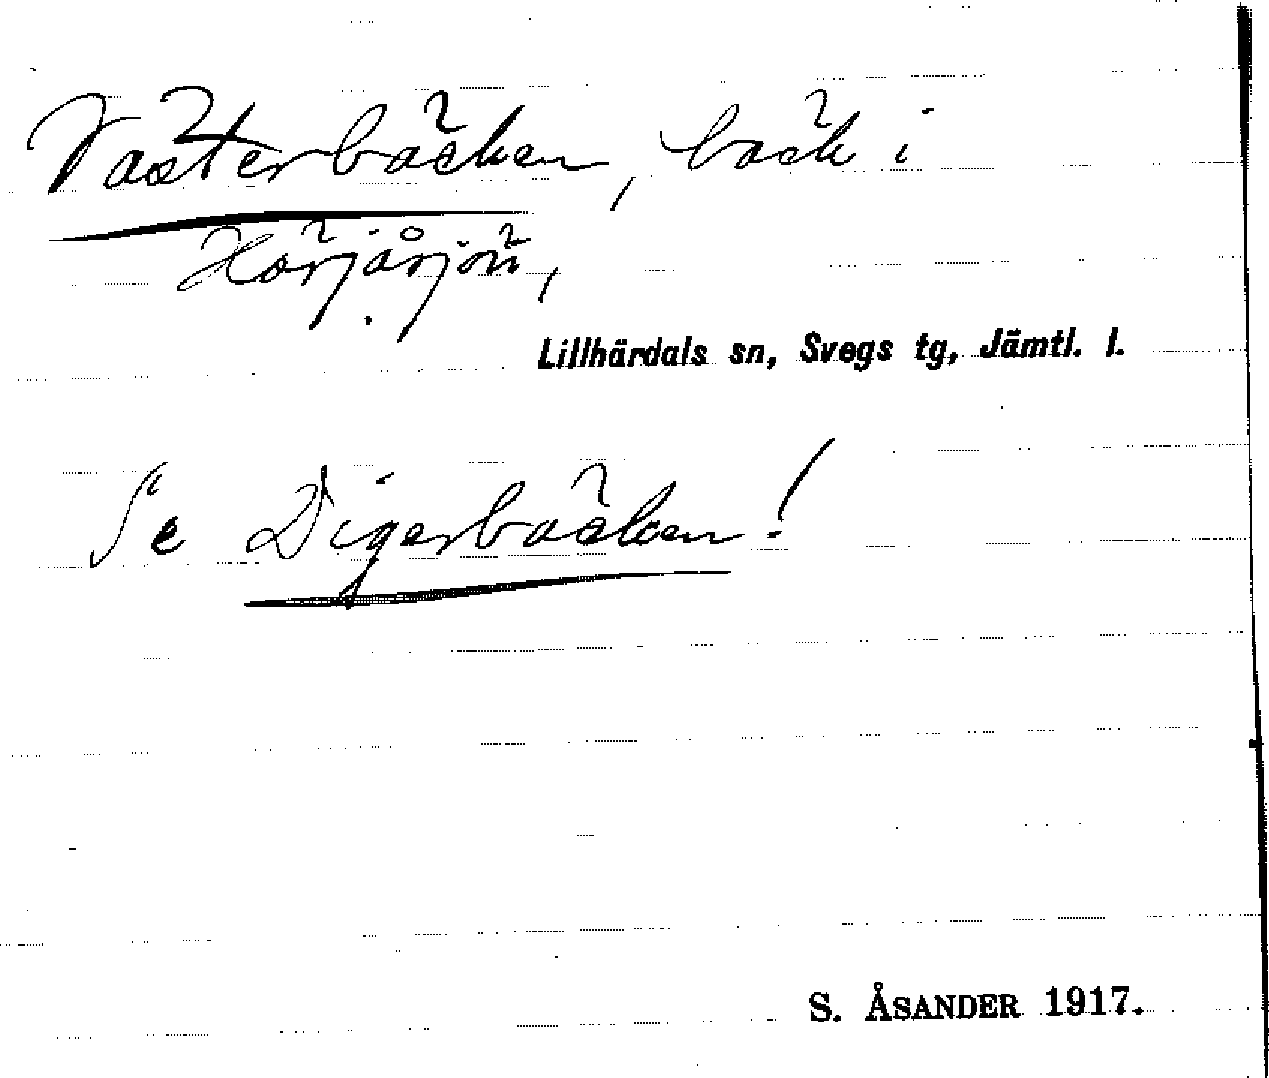 Västerbäcken, bäck i
Härjåsjön,
Lillhärdals sn, Svegs tg, Jämtl. l.
Se Digerbäcken!
S. ÅSANDER 1917.